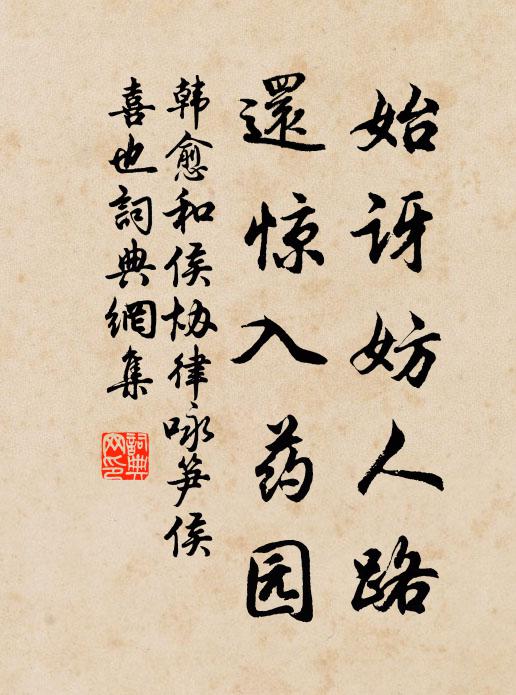 始讶妨人路
還惊入药园
韩愈和侯协律咏笋侯
喜也詞典網集
詞典
网印